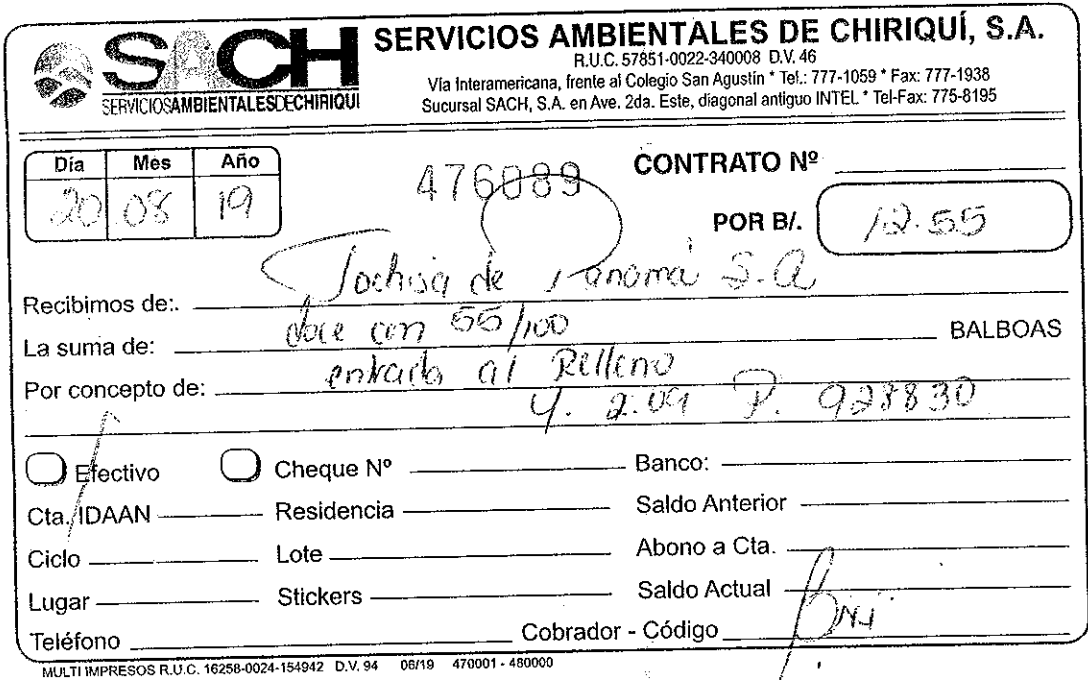 SACH
SERVICIOSAMBIENTALESDECHIRIQUI
SERVICIOS AMBIENTALES DE CHIRIQUÍ, S.A.
R.U.C. 57851-0022-340008 D.V. 46
Vía Interamericana, frente al Colegio San Agustín * Tel.: 777-1059 * Fax: 777-1938
Sucursal SACH, S.A. en Ave. 2da. Este, diagonal antiguo INTEL * Tel-Fax: 775-8195
Día Mes Año
20 08 19
476089
CONTRATO Nº
POR B/. 12.55
Recibimos de:. de Panamá S.A
La suma de: doce con 55/100 BALBOAS
Por concepto de: entrada al Relleno
4. 2.09 P. 928830
Efectivo Cheque Nº Banco:
Cta. IDAAN Residencia Saldo Anterior
Ciclo Lote Abono a Cta.
Lugar Stickers Saldo Actual
Teléfono Cobrador - Código
MULTI IMPRESOS R.U.C. 16258-0024-154942 D.V. 94 06/19 470001 - 480000